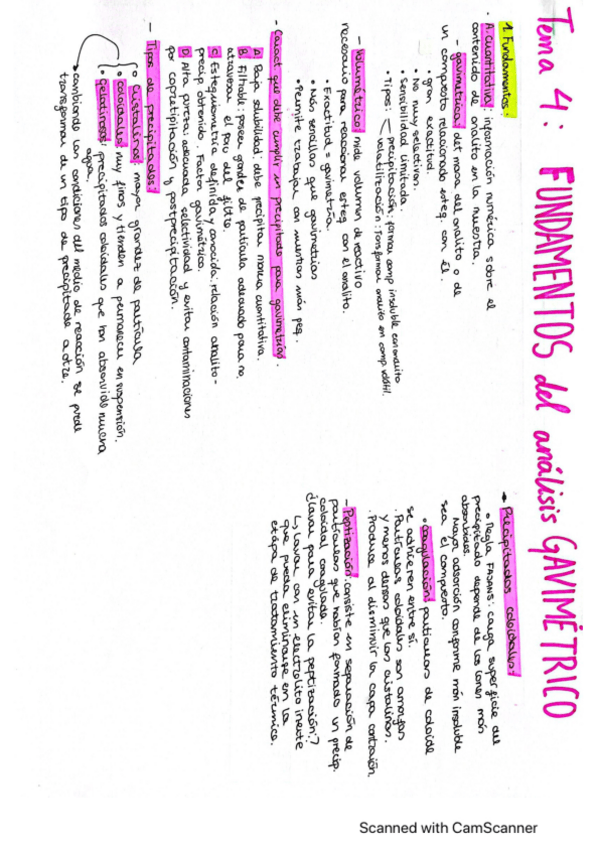 Tema 4: FUNDAMENTOS del análisis GAVIMÉTRICO
1. Fundamentos:
· A. cuantitativo: información numérica sobre el
contenido de analito en la muestra.
- gavimétrica: det masa del analito o de
un compuesto relacionado esteq. con él.
· gran exactitud.
· No muy selectivos.
· Sensibilidad limitada.
· Tipos: precipitación: formar comp insoluble con analito
volatilización: Transformar analito en comp volátil.
- Volumétrico: mide volumen de reactivo
necesario para reaccionar esteq con el analito.
· Exactitud = gavimetría.
· Más sencillas que gavimetrías
· Permite trabajar con muestras más peq.
- Caract que debe cumplir un precipitado para gavimetrías.
A Baja solubilidad: debe precipitar manera cuantitativa.
B Filtrable: poseer grandor de partícula adecuado para no
atravesar el poro del filtro.
C Estequiometría definida y conocida: relación analito-
precip obtenido. Factor gavimétrico.
D Alta pureza: adecuada selectividad y evitar contaminaciones
por coprecipitación y postprecipitación.
- Tipos de precipitados:
· Cristalinos: mayor grandez de partícula
· Coloidales: muy finos y tienden a permanecer en suspensión.
· Gelatinosos: precipitados coloidales que han absorvido mucha
agua
· cambiando las condiciones del medio de reacción se puede
transformar de un tipo de precipitado a otro.
→ Precipitados coloidales:
· Regla FAJANS: carga superficie del
precipitado depende de los iones más
absorbidos.
Mayor adsorción conforme más insoluble
sea el compuesto.
· Coagulación: partículas de coloide
se adhieren entre sí.
. Partículas coloidales son amorfas
y menos densas que las cristalinas.
. Produce al disminuir la capa contraión
- Peptización: consiste en separación de
partículas que habían formado un precip.
coloidal coagulado.
¿Lavar para evitar la peptización?
↳ Lavar con un electrolito inerte
que pueda eliminarse en la
etapa de tratamiento térmico.
Scanned with CamScanner